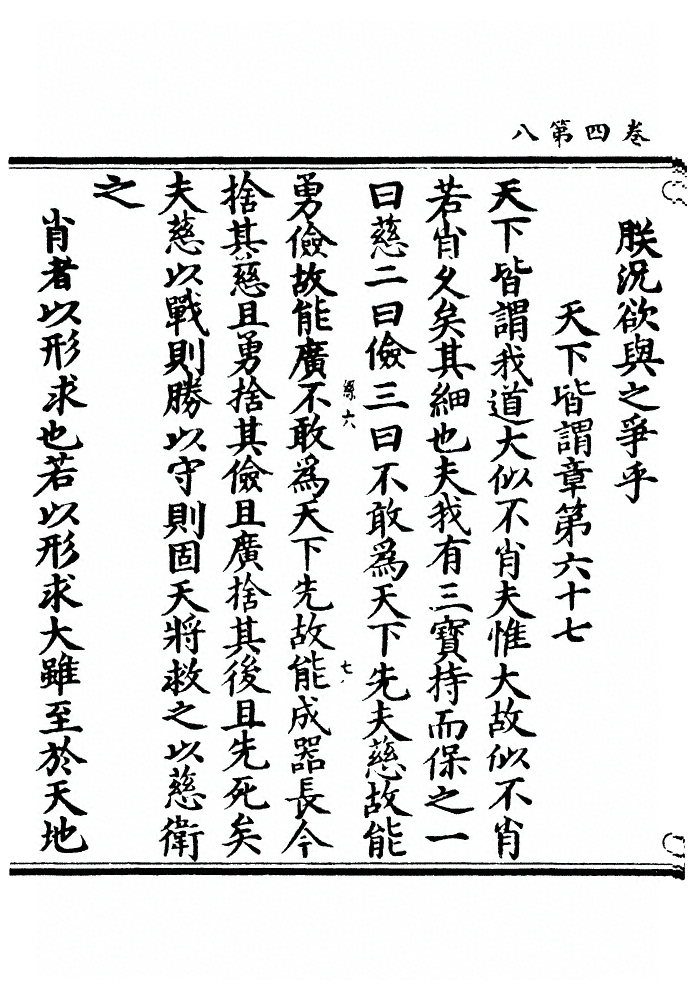 八第四卷
朕況欲與之爭乎
天下皆謂章第六十七
天下皆謂我道大似不肖夫惟大故似不肖
若肖久矣其細也夫我有三寶持而保之一
曰慈二曰儉三曰不敢為天下先夫慈故能
勇儉故能廣不敢為天下先故能成器長今
六
七
捨其慈且勇捨其儉且廣捨其後且先死矣
夫慈以戰則勝以守則固天將救之以慈衛
之
肖者以形求也若以形求大雖至於天地